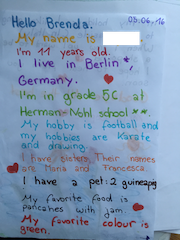 Hello Brenda.
05.06.16
My name is
I'm 11 years old.
I live in Berlin*,
Germany.
I'm in grade 5C at
Herman-Nohl school**.
My hobby is football and
my hobbies are Karate
and drawing.
I have sisters. Their names
are Maria and Francesca.
I have a pet: 2 guineapig
My favorite food is
pancakes with jam.
My favorite colour is
green.